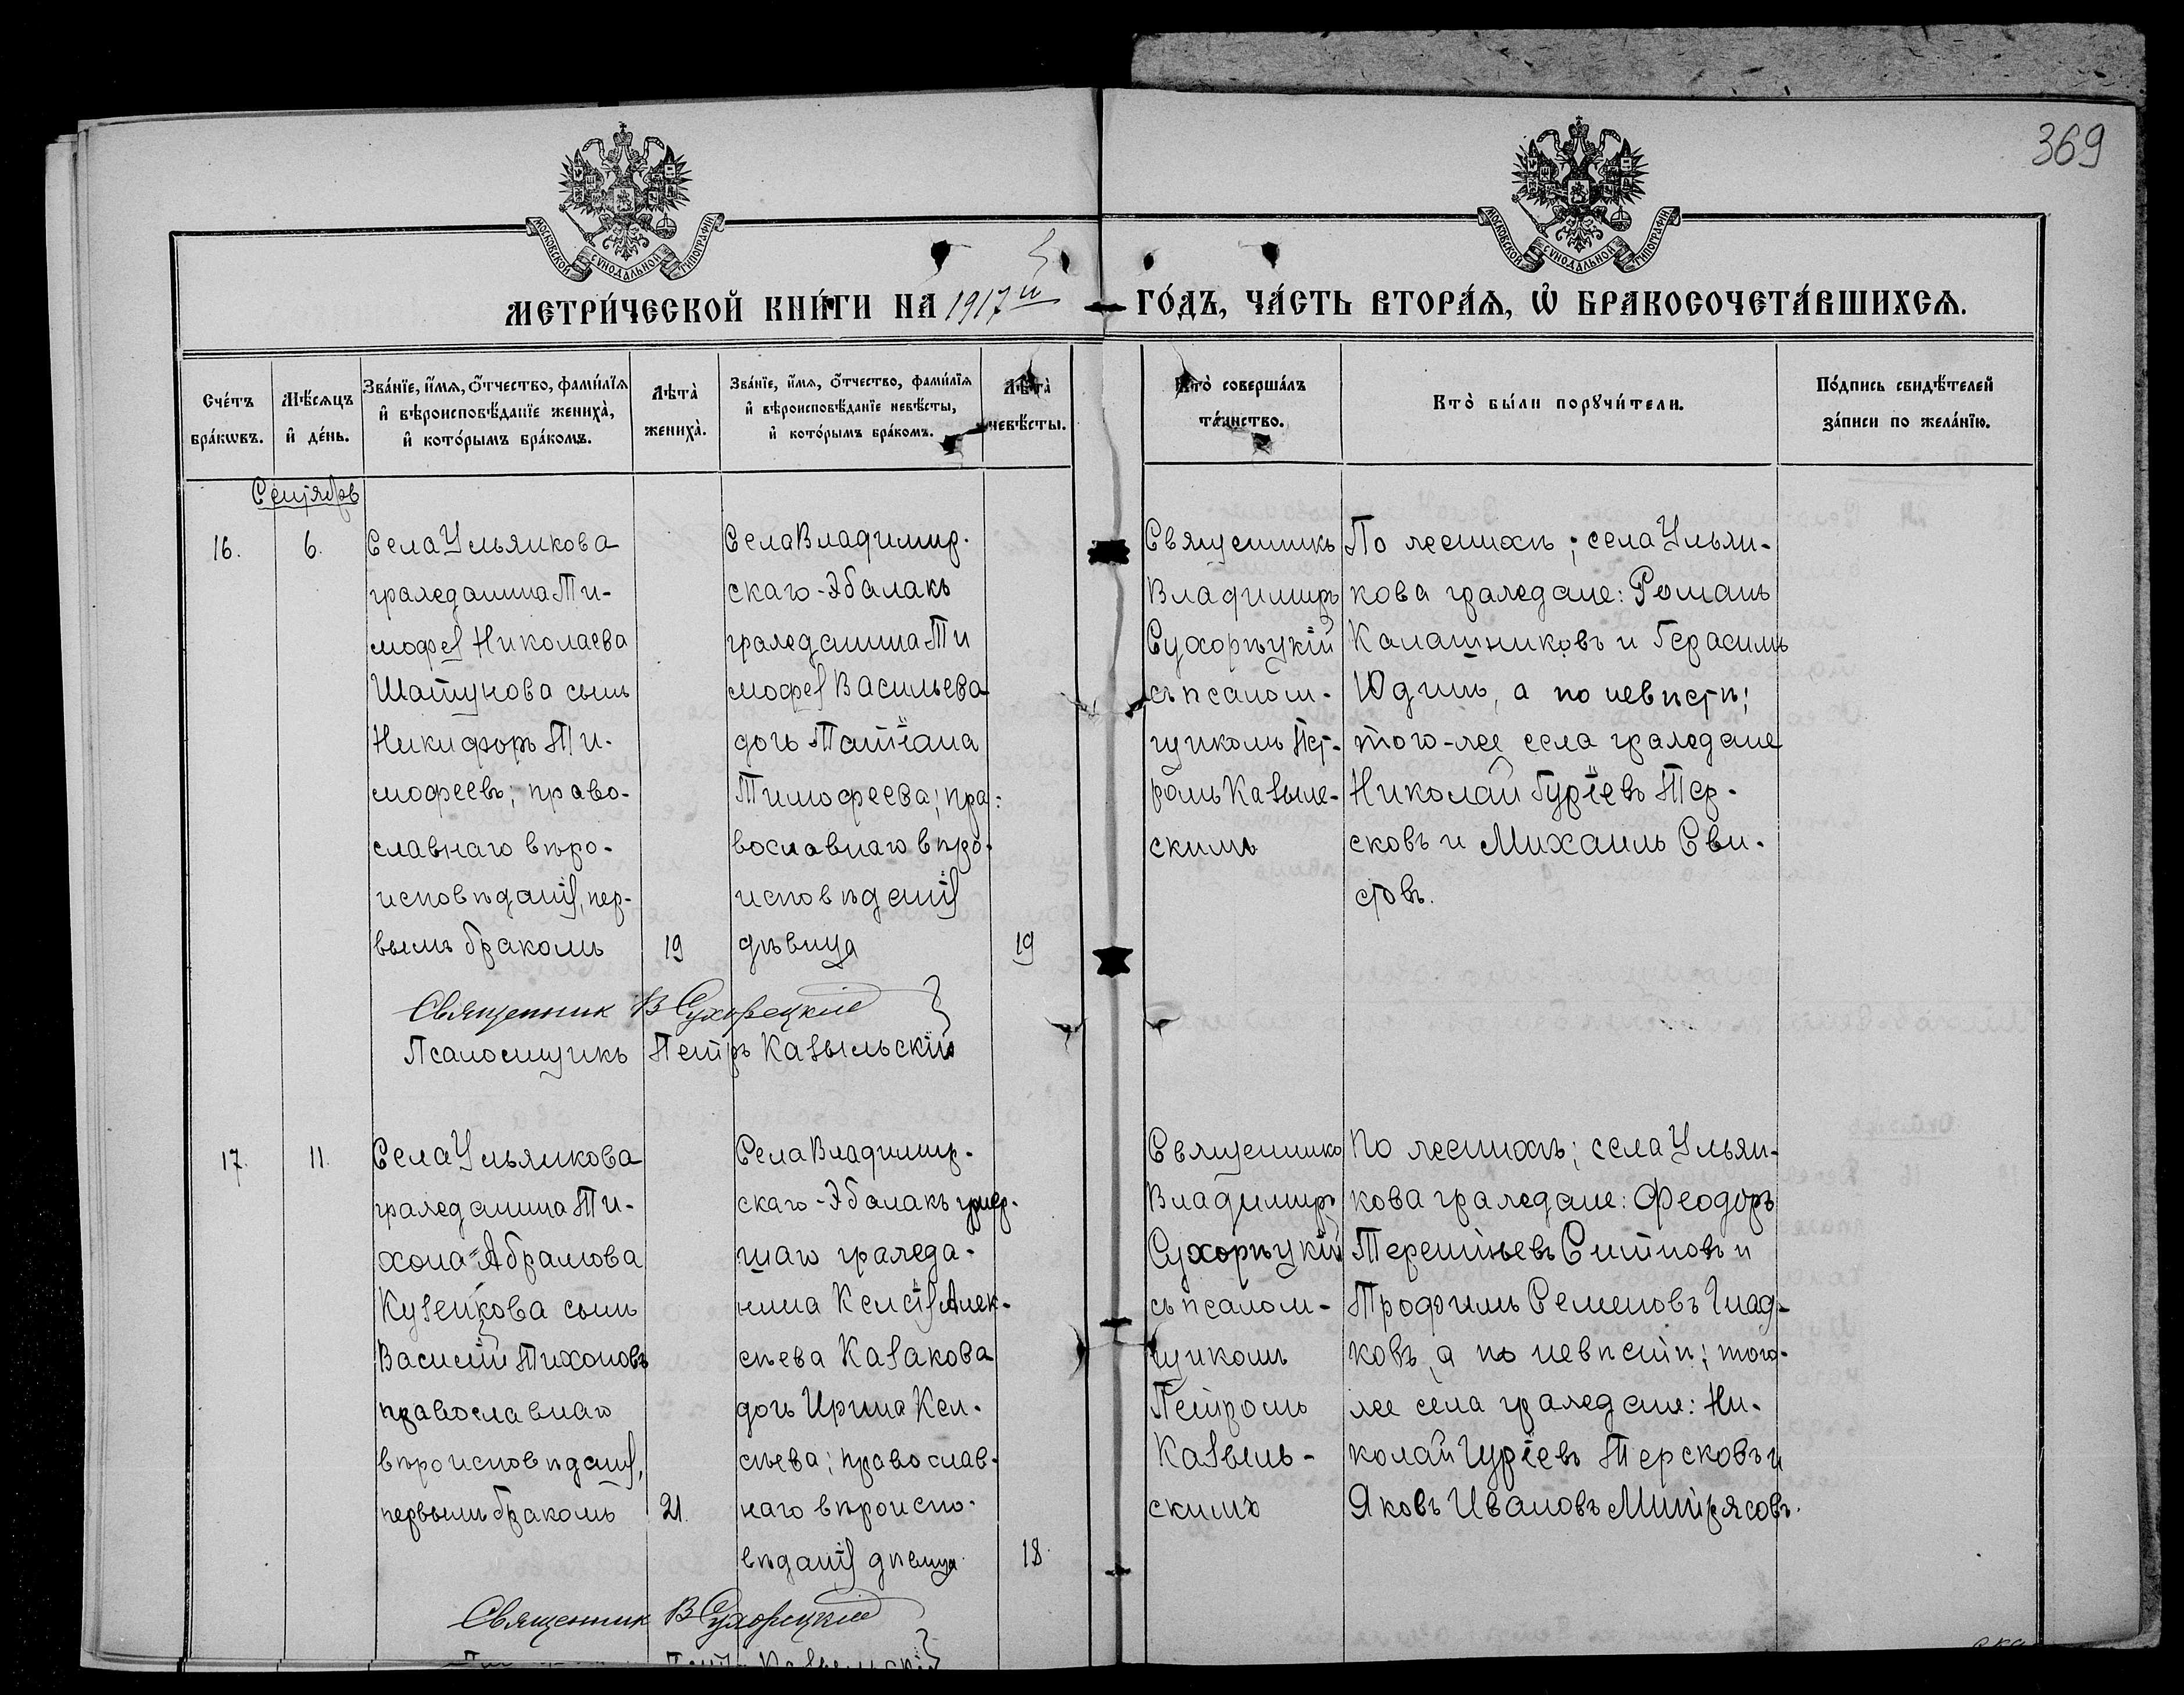 369
МОСКОВСКОЙ СѴНОДАЛЬНОЙ ТИПОГРАФІИ
МОСКОВСКОЙ СѴНОДАЛЬНОЙ ТИПОГРАФІИ
МЕТРИ́ЧЕСКОЙ КНИ́ГИ НА 1917й ГО́ДЪ, ЧА́СТЬ ВТОРА́Ѧ, Ѽ БРАКОСОЧЕТА́ВШИХСѦ.
Сче́тъ
бра́кѡвъ.
Мѣ́сѧцъ
и҆ де́нь.
Зва́нїе, и҆́мѧ, ѻ҆́тчество, фами́лїѧ
и҆ вѣроисповѣ́данїе жениха̀,
и҆ кото́рымъ бра́комъ.
Лѣта̀
жениха̀.
Зва́нїе, и҆́мѧ, ѻ҆́тчество, фами́лїѧ
и҆ вѣроисповѣ́данїе невѣ́сты,
и҆ кото́рымъ бра́комъ.
Лѣта̀
невѣ́сты.
Кто̀ соверша́лъ
та́инство.
Кто̀ бы́ли порꙋчи́тели.
По́дпись свидѣ́телей
за́писи по жела́нїю.
Сентябрь
16.
6.
Села Ульянкова
гражданина Ти-
мофея Николаева
Шатунова сынъ
Никифоръ Ти-
мофеевъ; право-
славнаго вѣро-
исповѣданія, пер-
вымъ бракомъ
19
Села Владимир-
скаго-Эбалакъ
гражданина Ти
мофея Васильева
дочь Татіана
Тимофеева; пра-
вославнаго вѣро-
исповѣданія
дѣвица
19
Священникъ
Владимиръ
Сухорѣцкій
съ псалом-
щикомъ Пет-
ромъ Казыль-
скимъ
По женихѣ; села Ульян-
кова граждане: Романъ
Калашниковъ и Герасимъ
Юдинъ, а по невѣстѣ;
того-же села граждане
Николай Гуріевъ Тер-
сковъ и Михаилъ Сви-
стовъ.
Священник В Сухорецкій
Псаломщикъ Петръ Казыльскій
17.
11.
Села Ульянкова
гражданина Ти-
хона Абрамова
Кузенкова сынъ
Василій Тихоновъ
православнаго
вѣроисповѣданія,
первымъ бракомъ
21.
Села Владимир-
скаго-Эбалакъ умер-
шаго гражда-
нина Ксенія Алек-
сѣева Казакова
дочь Ирина Ксен-
сіева; православ-
наго вѣроиспо-
вѣданія дѣвица
18.
Священникъ
Владимиръ
Сухорѣцкій
съ псалом-
щикомъ
Петромъ
Казыль-
скимъ
По женихѣ; села Ульян-
кова граждане: Феодоръ
Терентьевъ Ситновъ и
Трофимъ Семеновъ Глад-
ковъ, а по невѣстѣ; того-
же села граждане: Ни-
колай Гуріевъ Терсковъ и
Яковъ Ивановъ Митрясовъ.
Священник В Сухорецкій
Петръ Казыльскій